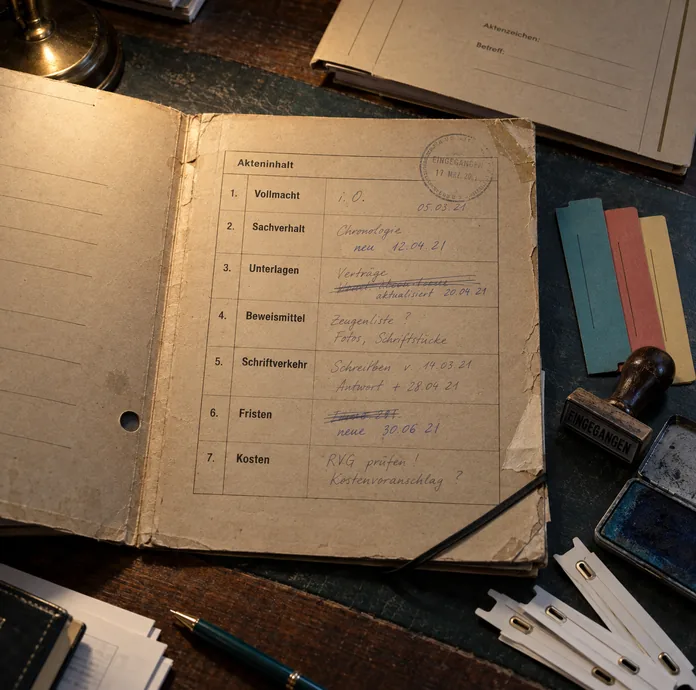 Aktenzeichen:
Betreff:
Akteninhalt
EINGEGANGEN
1. Vollmacht i. O.
05.03.21
2. Sachverhalt Chronologie
neu 12.04.21
3. Unterlagen Verträge
aktualisiert 20.04.21
4. Beweismittel Zeugenliste ?
Fotos, Schriftstücke
5. Schriftverkehr Schreiben v. 14.03.21
Antwort + 28.04.21
6. Fristen
neue 30.06 21
7. Kosten RVG prüfen !
Kostenvoranschlag ?
EINGEGANGEN